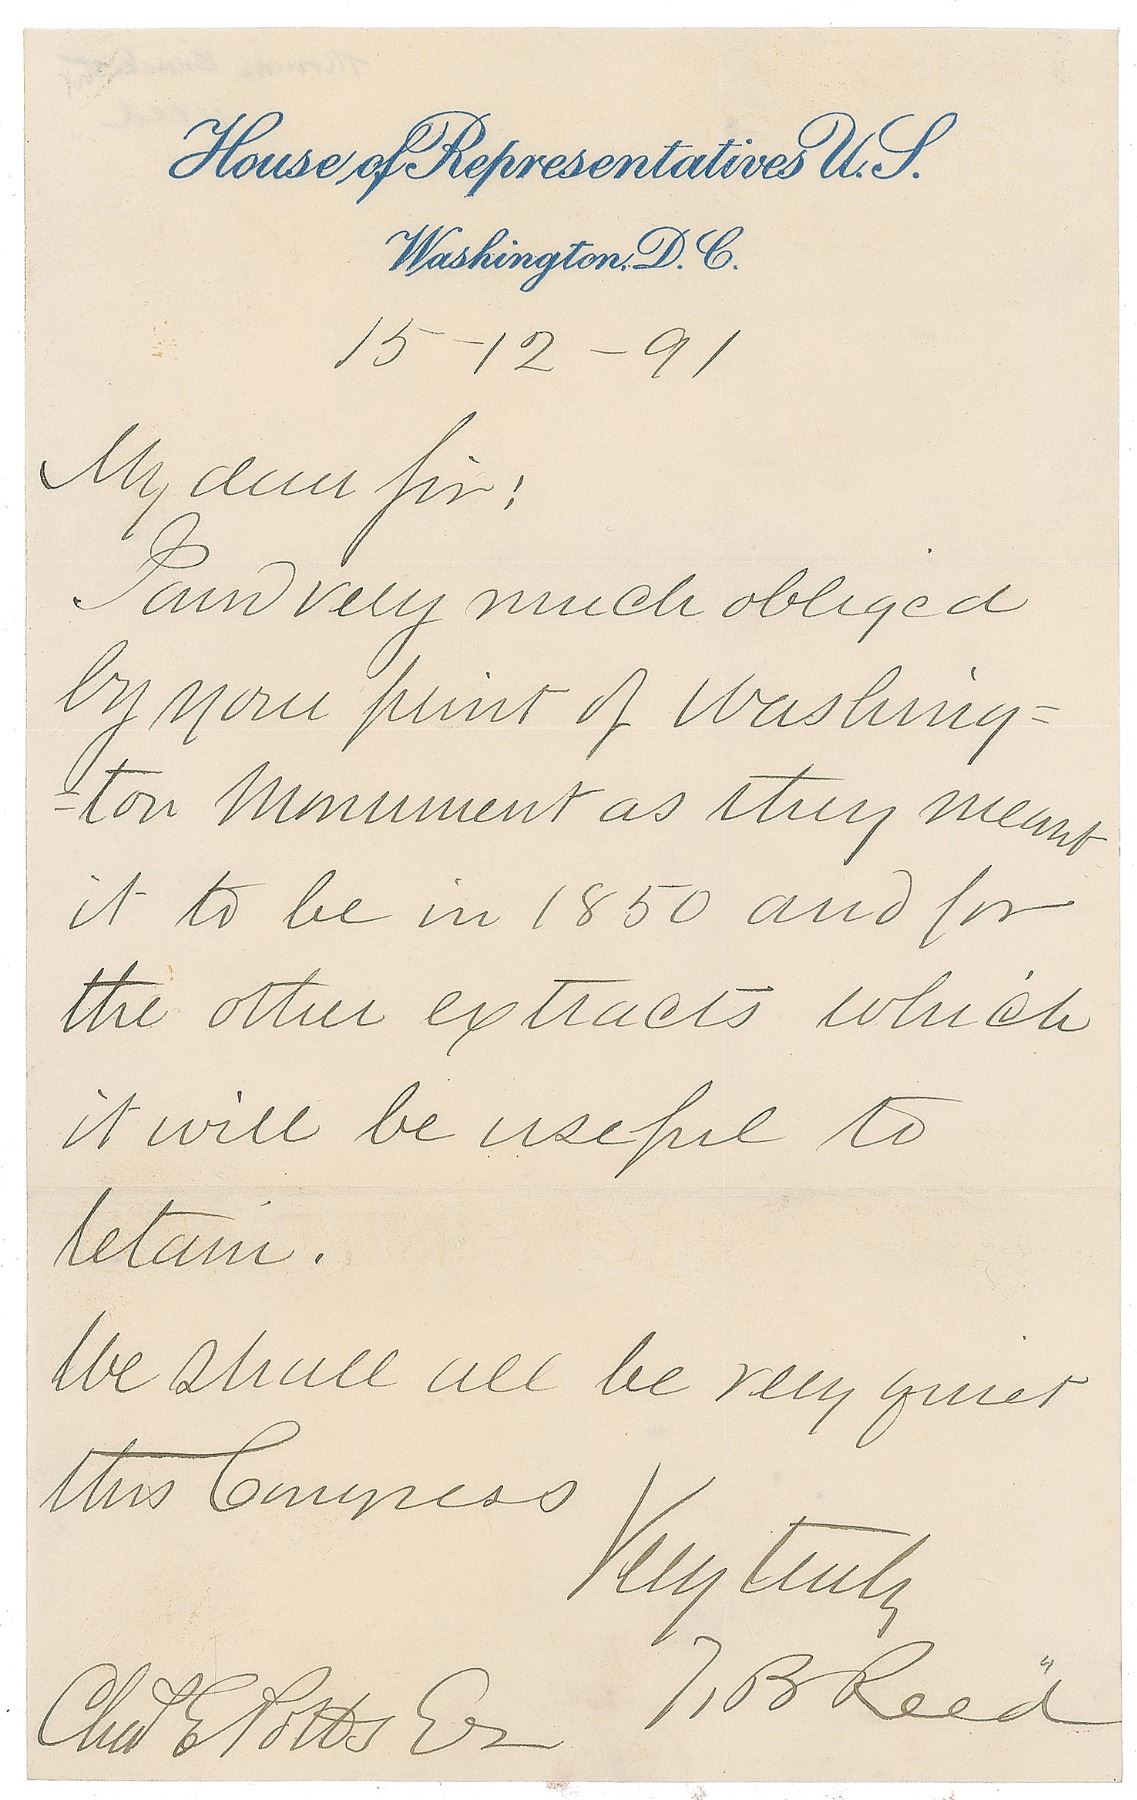 House of Representatives U.S.
Washington, D.C.
15-12-91
My dear Sir;
I am very much obliged
by your print of Washing=
=ton Monument as they meant
it to be in 1850 and for
the other extracts which
it will be useful to
retain.
We shall all be very quiet
this Congress
Very truly
T. B. Reed
Chas E Potts Esq